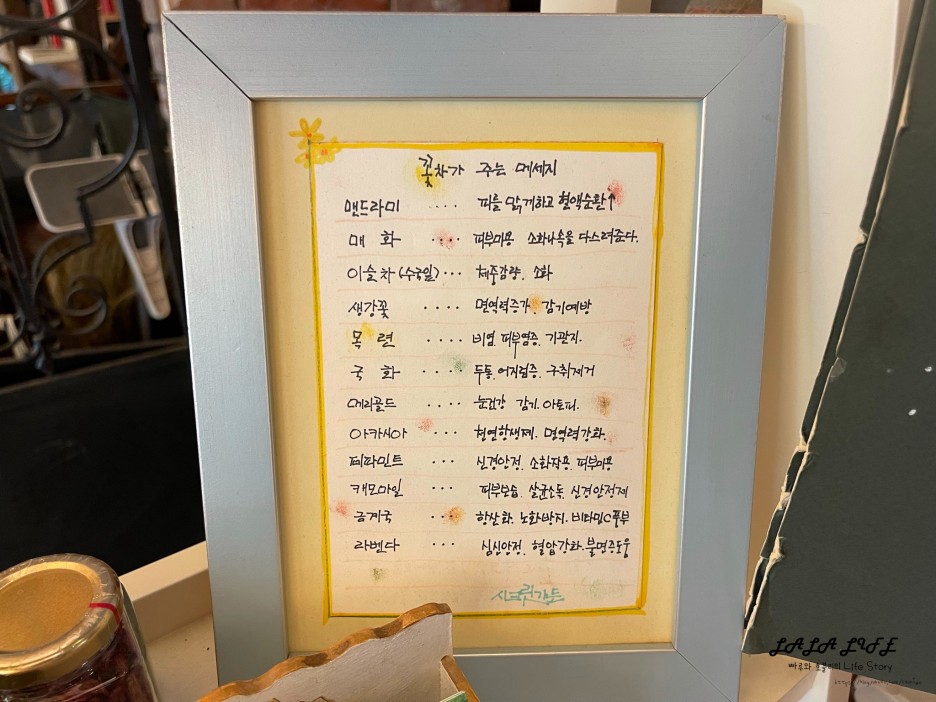 꽃차가 주는 메세지
맨드라미 .... 피를 맑게하고 혈액순환↑
매 화 .... 피부미용 소화나속을 다스려준다.
이슬차(수국잎)... 체중감량. 소화
생강꽃 .... 면역력증가. 감기예방
목 련 .... 비염. 피부염증. 기관지.
국 화 .... 두통. 어지럼증. 구취제거
메리골드 ... 눈건강 감기. 아토피.
아카시아 ... 천연항생제. 면역력강화.
페파민트 ... 신경안정. 소화작용. 피부미용
캐모마일 ... 피부보습. 살균소독. 신경안정제
금계국 ... 항산화. 노화방지. 비타민C풍부
라벤다 ... 심신안정. 혈압강화. 불면증도움
시크릿가든
LALA LIFE
Life Story